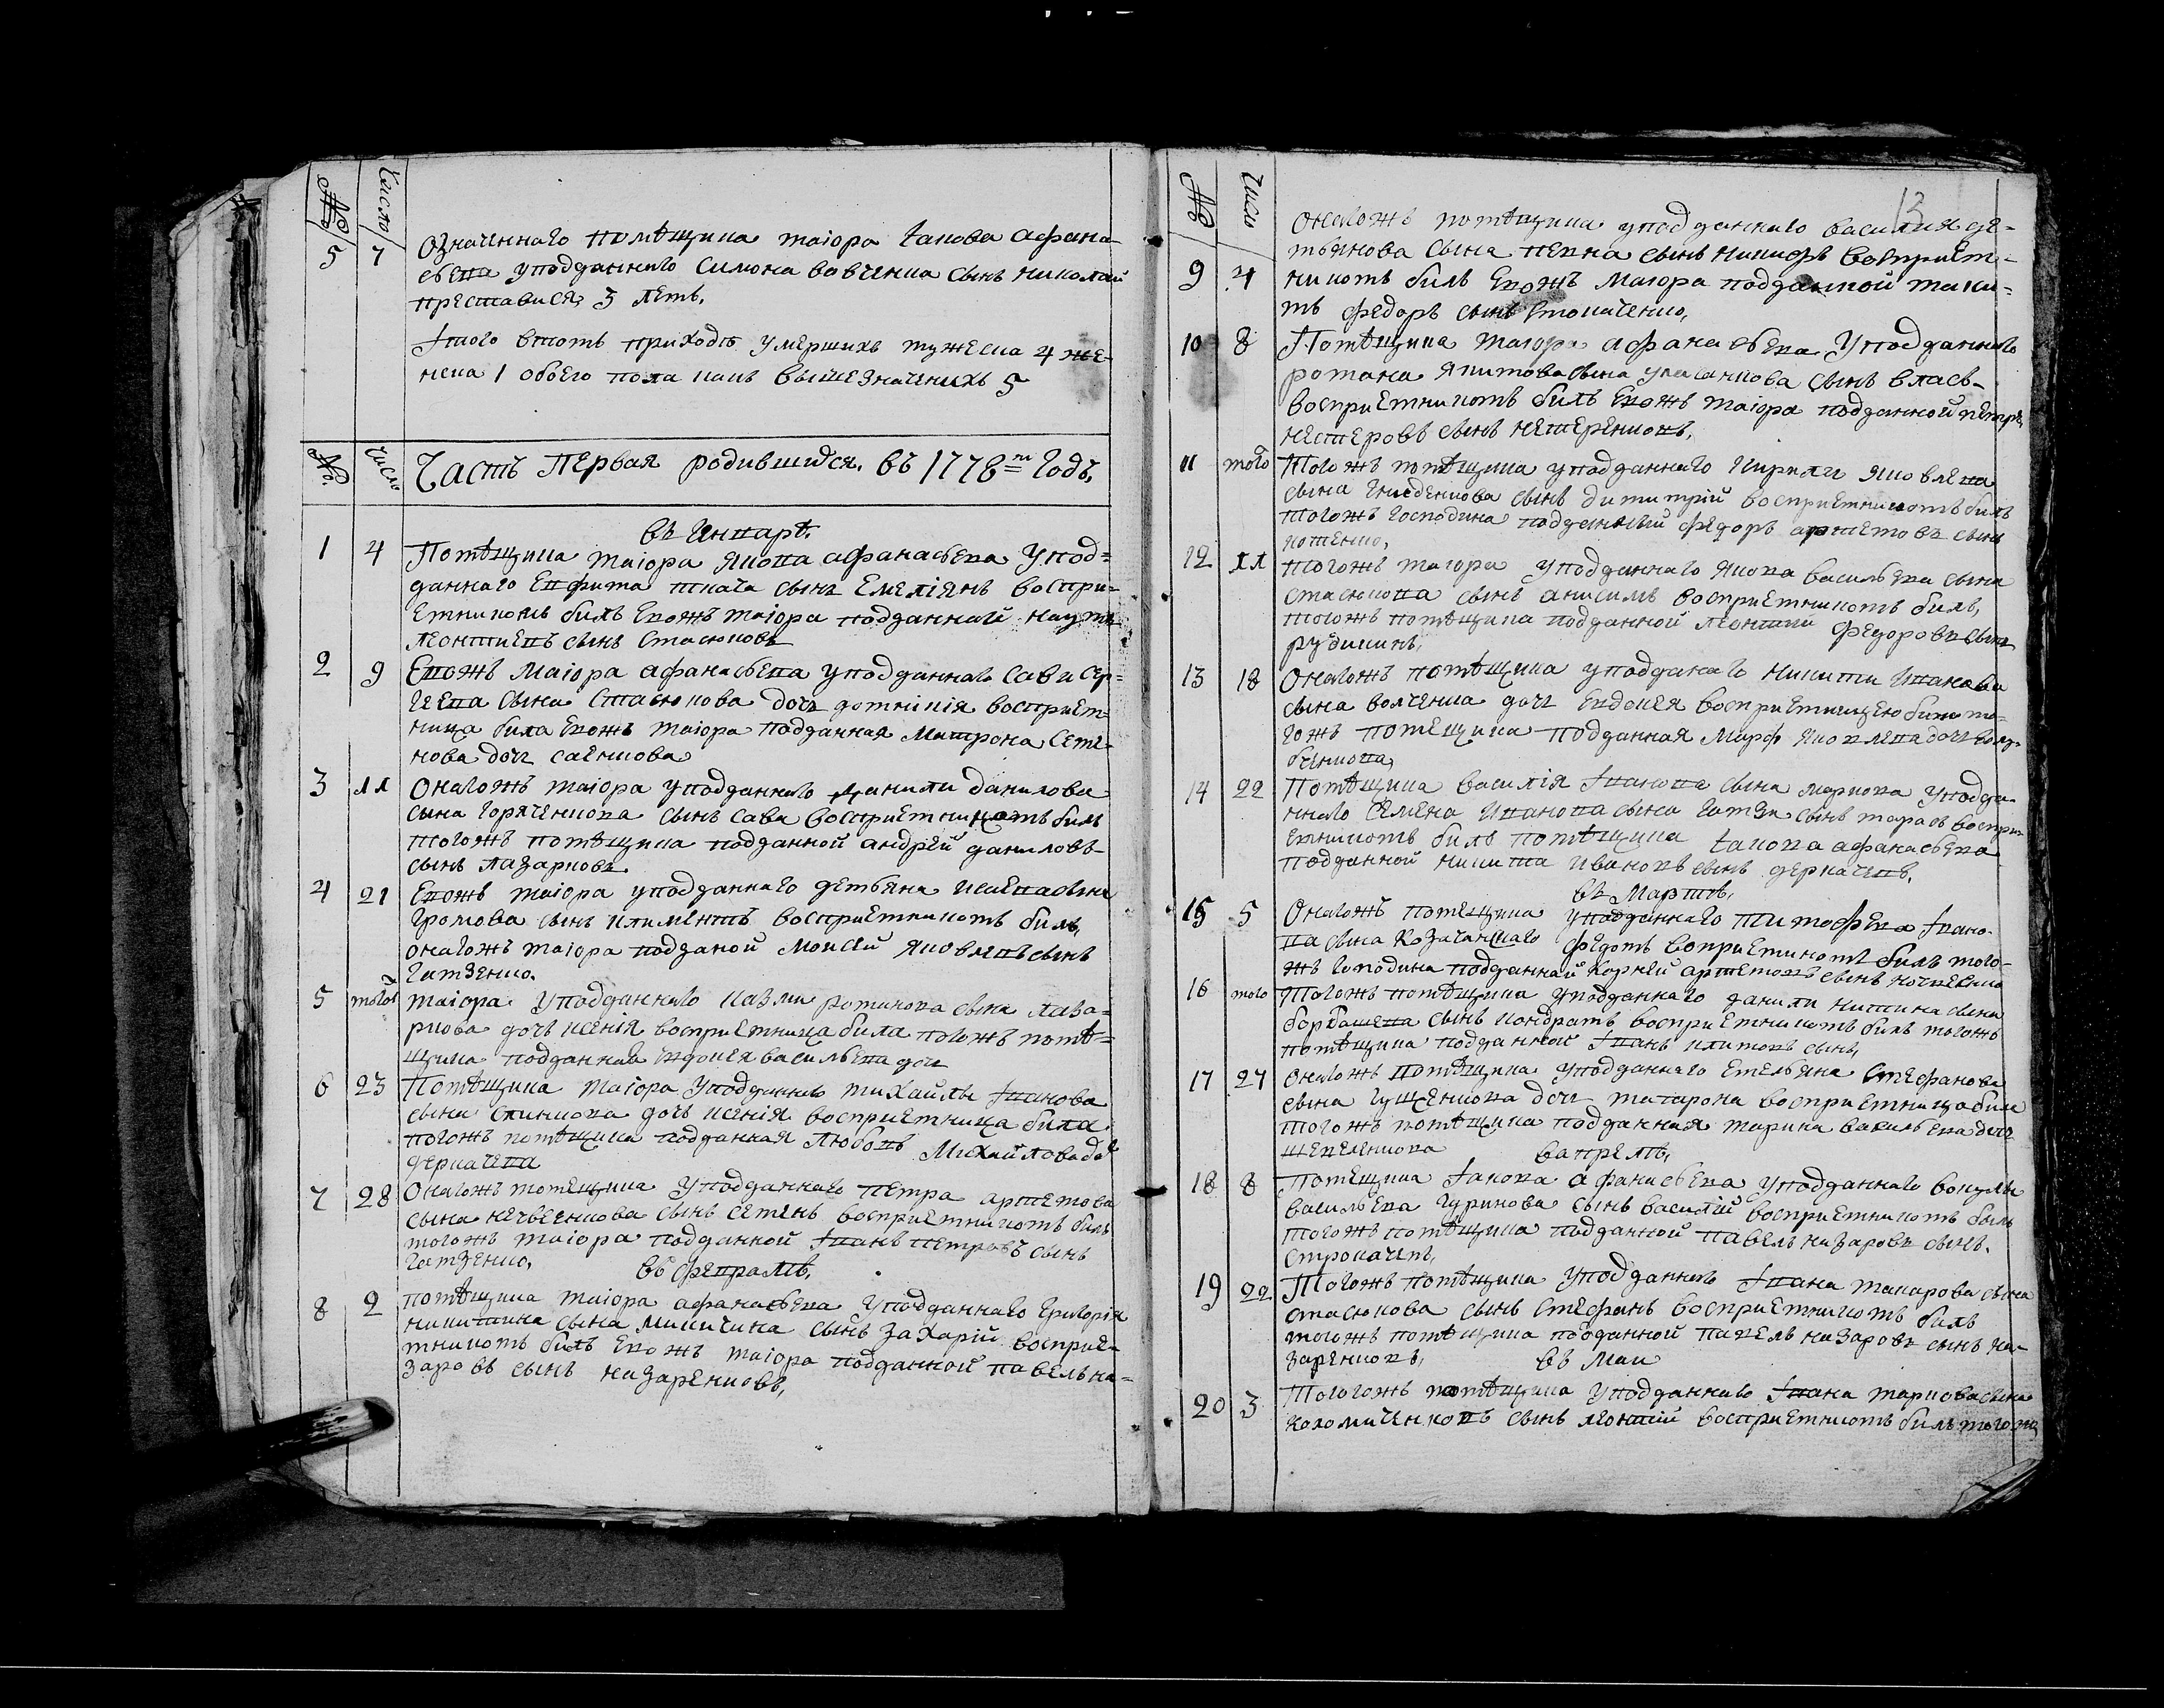 № Число
5 7 Означеннаго помѣщика маіора Іакова Афана-
сьева уподданнаго Симона вовченка сынъ Николай
преставися 3 летъ,
Iтого втомъ приходѣ умершихъ мужеска 4 же-
неска 1 обоего пола какъ вышезначенихъ 5
№. Число Часть Первая родившихся. въ 1778м Годѣ.
въ Январѣ.
1 4 Помѣщика маіора Якова афанасьева упод=
даннаго Евфима ткача сынъ Емеліянъ воспри-
емникомъ билъ Евожъ маіора подданной Наумъ
леонтиевъ сынъ Стасюковъ
2 9 Евожъ Маіора афанасьева уподданнаго Сави Сер-
геева сына Стасюкова дочь домникія восприем=
ница била Евожъ маіора подданная Матрона Семе-
нова дочь саенкова
3 11 Оногожъ маіора уподданнаго данили данилова
сына горяченкова сынъ Сава восприемникомъ билъ
тогожъ помѣщика подданной андрей даниловъ
сынъ лазарковъ
4 21 Евожъ маіора уподданнаго демьяна исаева сына
Громова сынъ климентъ восприемникомъ билъ,
оногожъ маіора подданой Моисей Яковлевъ сынъ
Гамзенко.
5 того маіора уподданнаго казми романова сына лаза=
ркова дочь ксенія восприемница била тогожъ помѣ=
щика подданная Евдокея васильева дочь
6 23 Помѣщика маіора уподданнаго михайли Iванова
сына дочь ксенія восприемница била
тогожъ помѣщика подданная Любовь Михайлова дочь
деркачева
7 28 Оногожъ помещика уподданнаго петра артемова
сына сынъ семенъ восприемникомъ билъ
тогожъ маіора подданной Iванъ петровъ сынъ
Гамзенко. въ Февралѣ.
8 2 помѣщика маіора афанасьева уподданнаго Григорія
никитина сына Микичина сынъ Захарій восприе-
мникомъ билъ Евожъ маіора подданной павелъ на=
заровъ сынъ назаренковъ,
13
№ Число
Оногожъ помѣщика уподданнаго василия де-
мьянова сына сынъ никифръ восприем-
9 4 никомъ билъ Евожъ Маіора подданной
федоръ сынъ
10 8 Помѣщика маіора афанасьева уподданнаго
романа Якимова сына сынъ власъ
восприемникомъ билъ Евожъ маіора подданной петръ
нестеровъ сынъ нестеренковъ,
11 того Тогожъ помѣщика уподданнаго кирили яковлева
сына сынъ димитрій восприемникомъ билъ
тогожъ господина подданный федоръ артемовъ сынъ

12 11 тогожъ маіора уподданнаго Якова васильева сына
стасюкова сынъ анисимъ восприемникомъ билъ,
тогожъ помѣщика подданной леонтий федоровъ сынъ
рудикинъ,
13 18 Оногожъ помѣщика уподданаго никити Иванова
сына вовченка дочь Евдокея восприемницею била то-
гожъ помещика подданная Марф яковлева дочь

14 22 Помѣщика василія Iванова сына маркова уподда-
ннаго семена Иванова сына сынъ тарасъ воспри-
емникомъ билъ помѣщика Iакова афанасьева
подданной никита ивановъ сынъ деркачевъ.
въ Мартѣ.
15 5 Оногожъ помещика уподданнаго тимофея Iвано-
ва сына федотъ восприемникомъ билъ того-
жъ господина подданнай корней артемовъ сынъ
16 того Тогожъ помѣщика уподданнаго данили сына
сынъ кондратъ восприемникомъ билъ тогожъ
помѣщика подданной Iванъ климовъ сынъ,
17 27 Оногожъ помѣщика уподданнаго емельяна Стефанова
сына гущенкова дочь матрона восприемница била
тогожъ помѣщика подданная марина васильева дочь
въ апрелѣ,
18 8 Помещика Iакова афанасьева уподданнаго вокули
васильева гуринова сынъ василій восприемникомъ былъ
тогожъ помѣщика подданной павелъ назаровъ сынъ.

19 22 Тогожъ помѣщика уподданнаго Iвана макарова сына
стасюкова сынъ Стефанъ восприемникомъ билъ
тогожъ помѣщика подданной павелъ назаровъ сынъ на-
заренковъ, въ Маи
20 3 Тогожъ помѣщика уподданнаго Iвана маркова сына
коломиченковъ сынъ леонтій восприемникомъ билъ тогожъ